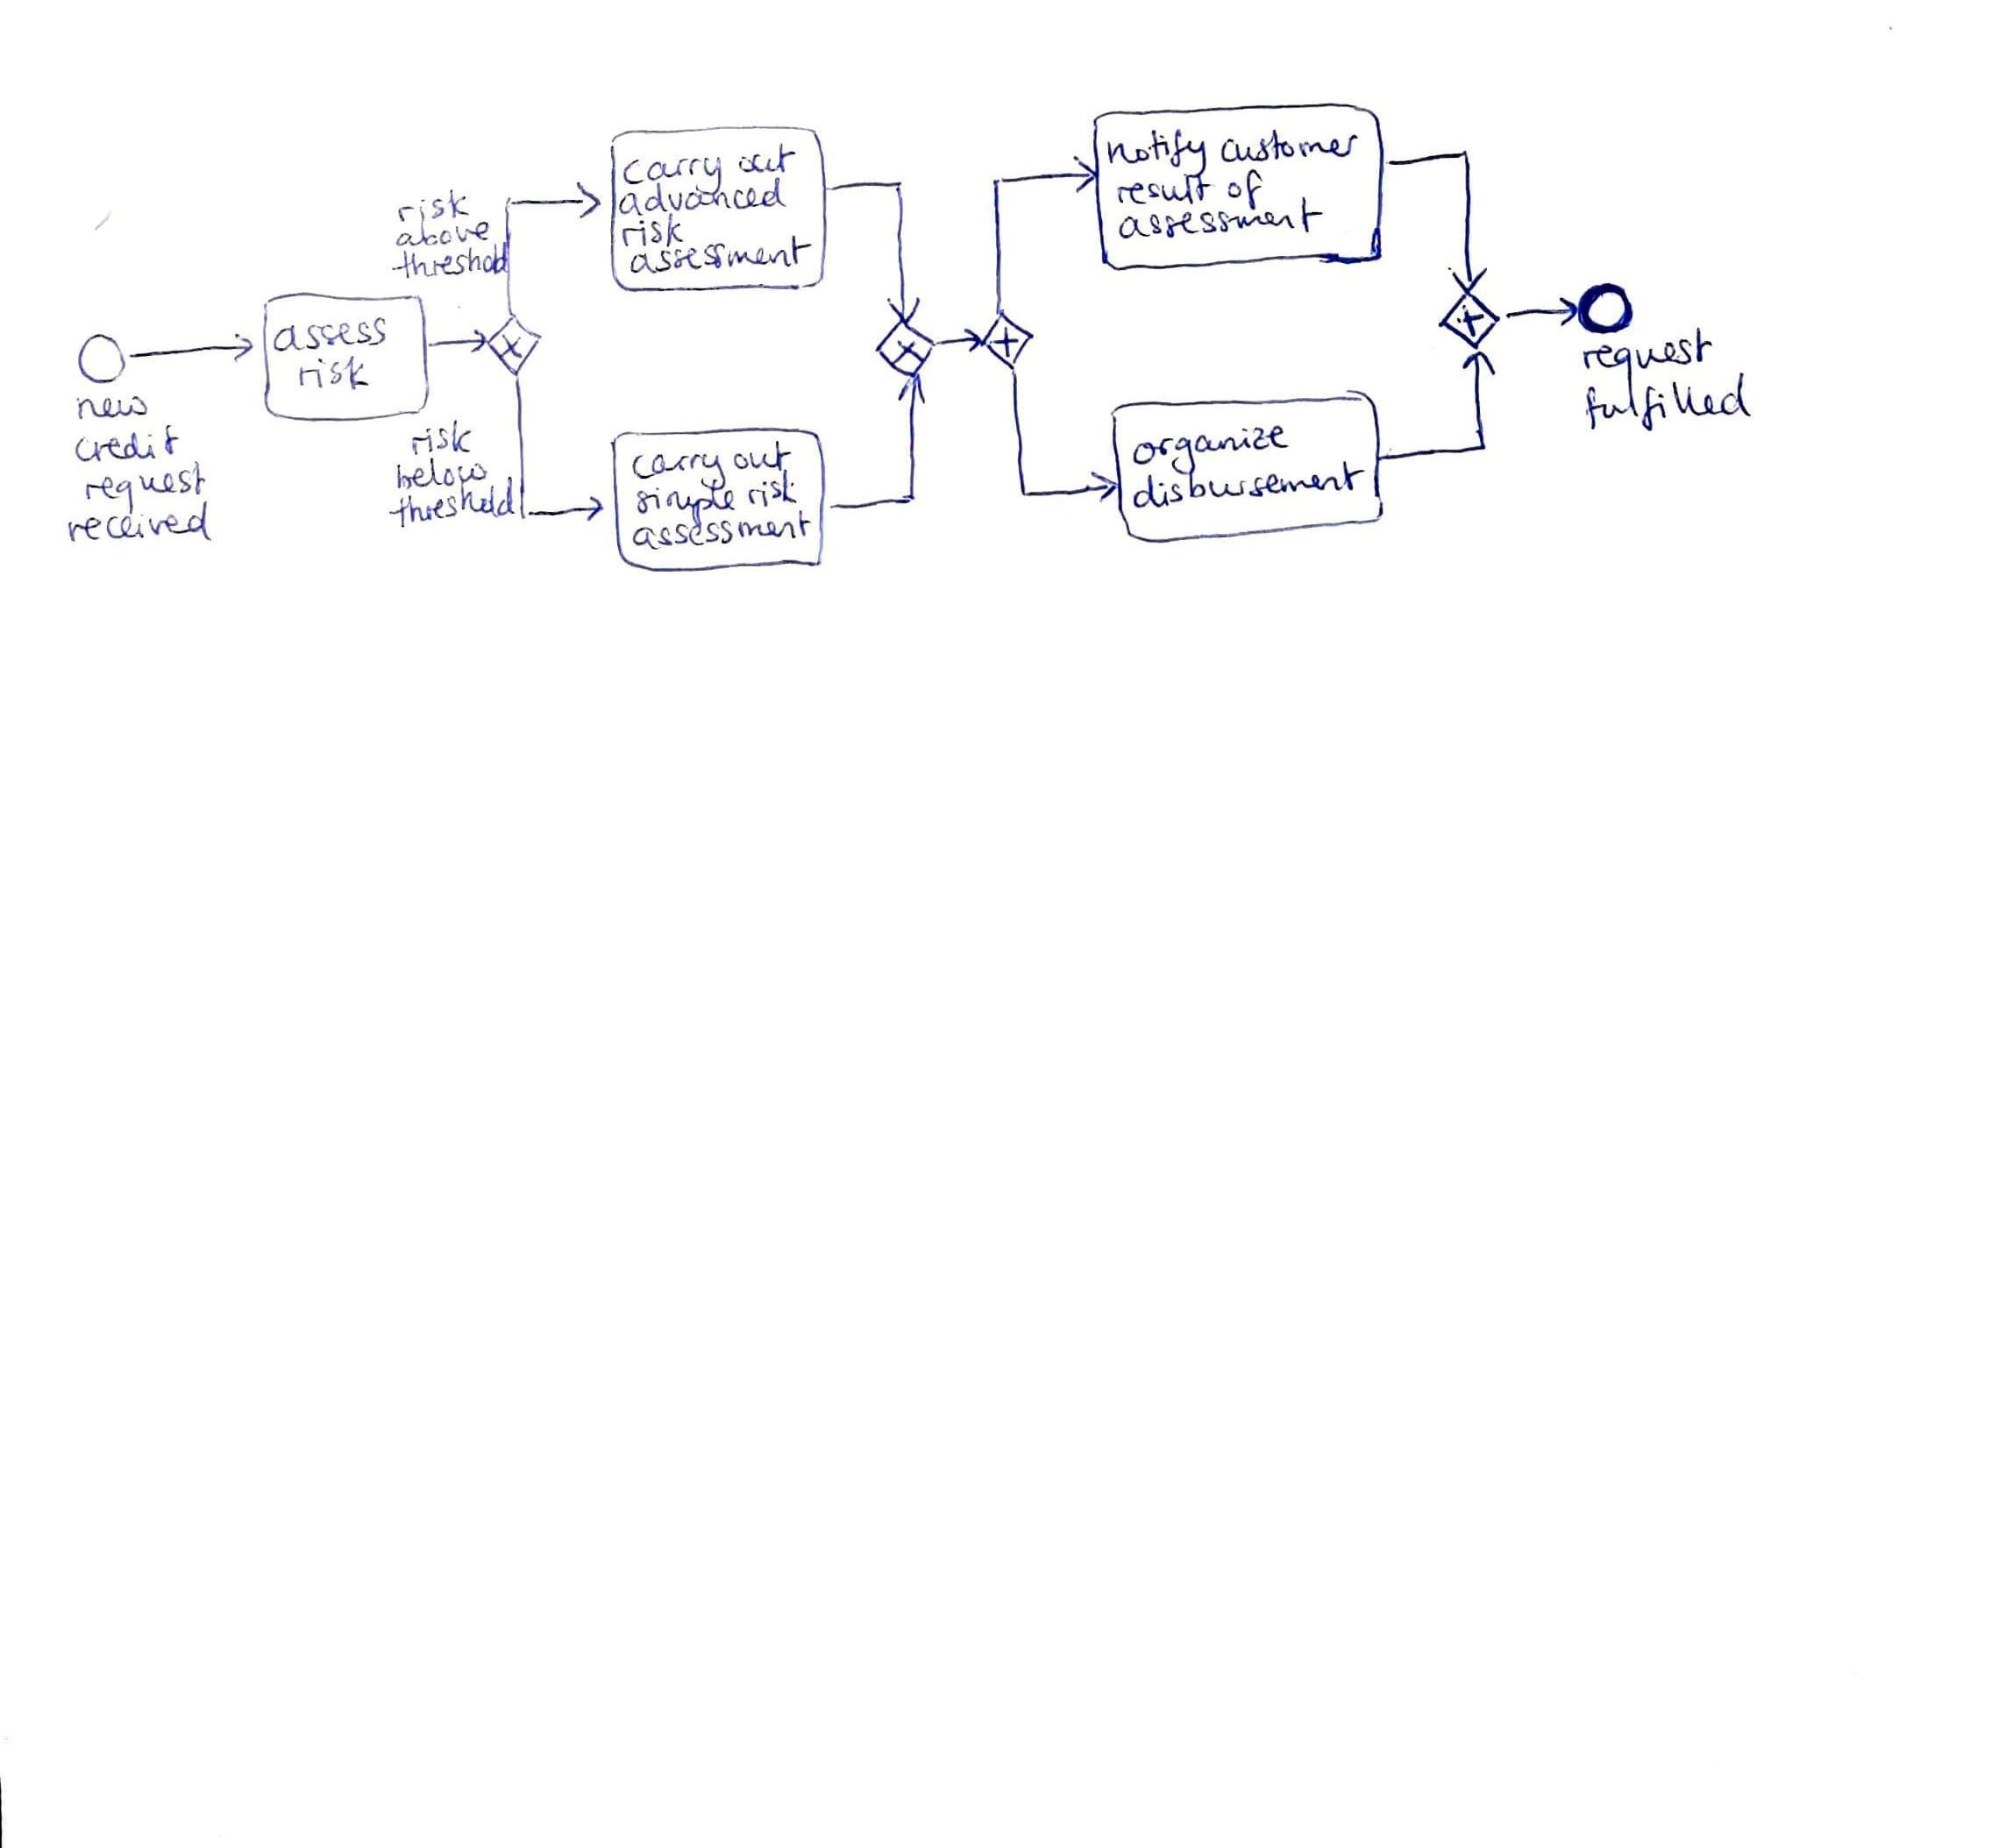 new
credit
request
received
assess
risk
risk
above
threshold
risk
below
threshold
carry out
advanced
risk
assessment
carry out
simple risk
assessment
notify customer
result of
assessment
organize
disbursement
request
fulfilled